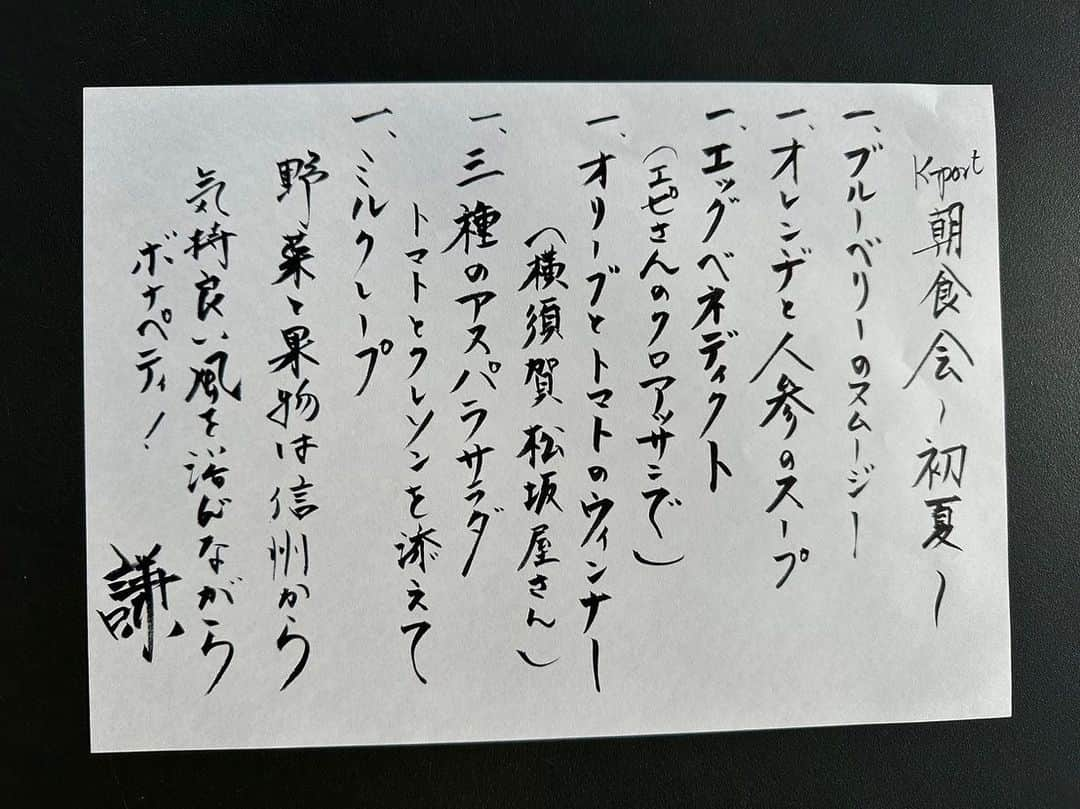 K-port 朝食会〜初夏〜
一、ブルーベリーのスムージー
一、オレンヂと人参のスープ
一、エッグベネディクト
（エピさんのクロアッサンで）
一、オリーブとトマトのウィンナー
（横須賀松坂屋さん）
一、三種のアスパラサラダ
トマトとクレソンを添えて
一、ミルクレープ
野菜と果物は信州から
気持良い風を浴びながら
ボナペティ！
謙